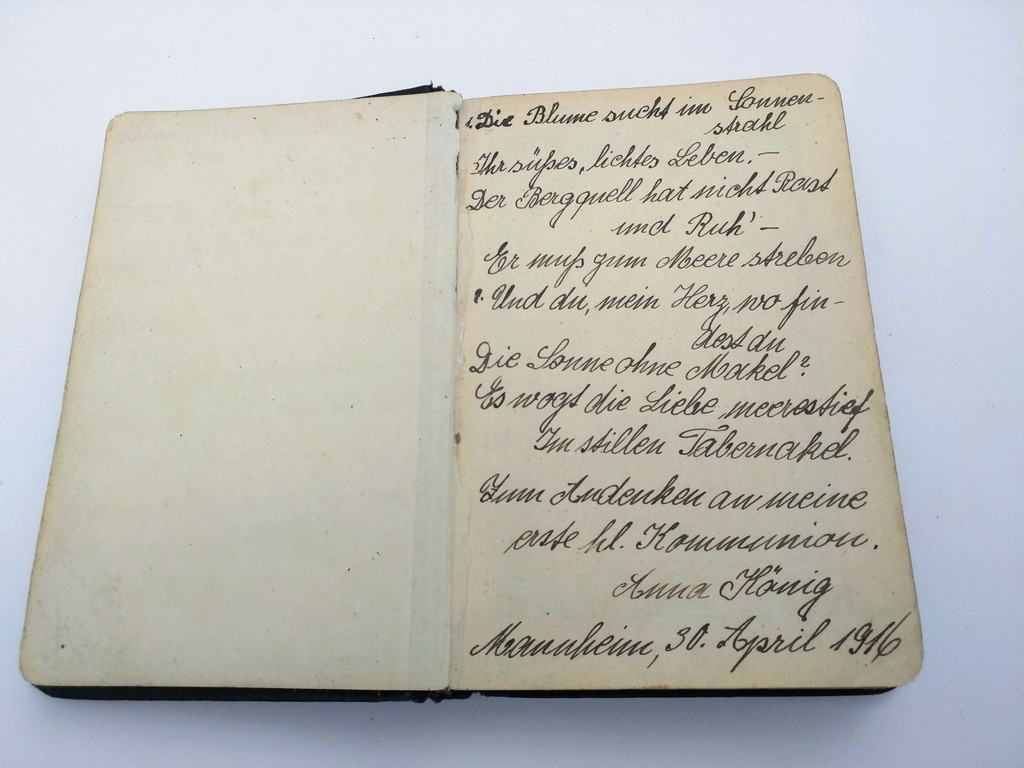 1. Die Blume sucht im Sonnen-
strahl
Ihr süßes, lichtes Leben. —
Der Bergquell hat nicht Rast
und Ruh' —
Er muß zum Meere streben
2. Und du, mein Herz, wo fin-
dest du
Die Sonne ohne Makel?
Es wogt die Liebe meerestief
Im stillen Tabernakel.
Zum Andenken an meine
erste hl. Kommunion.
Anna König
Mannheim, 30. April 1916